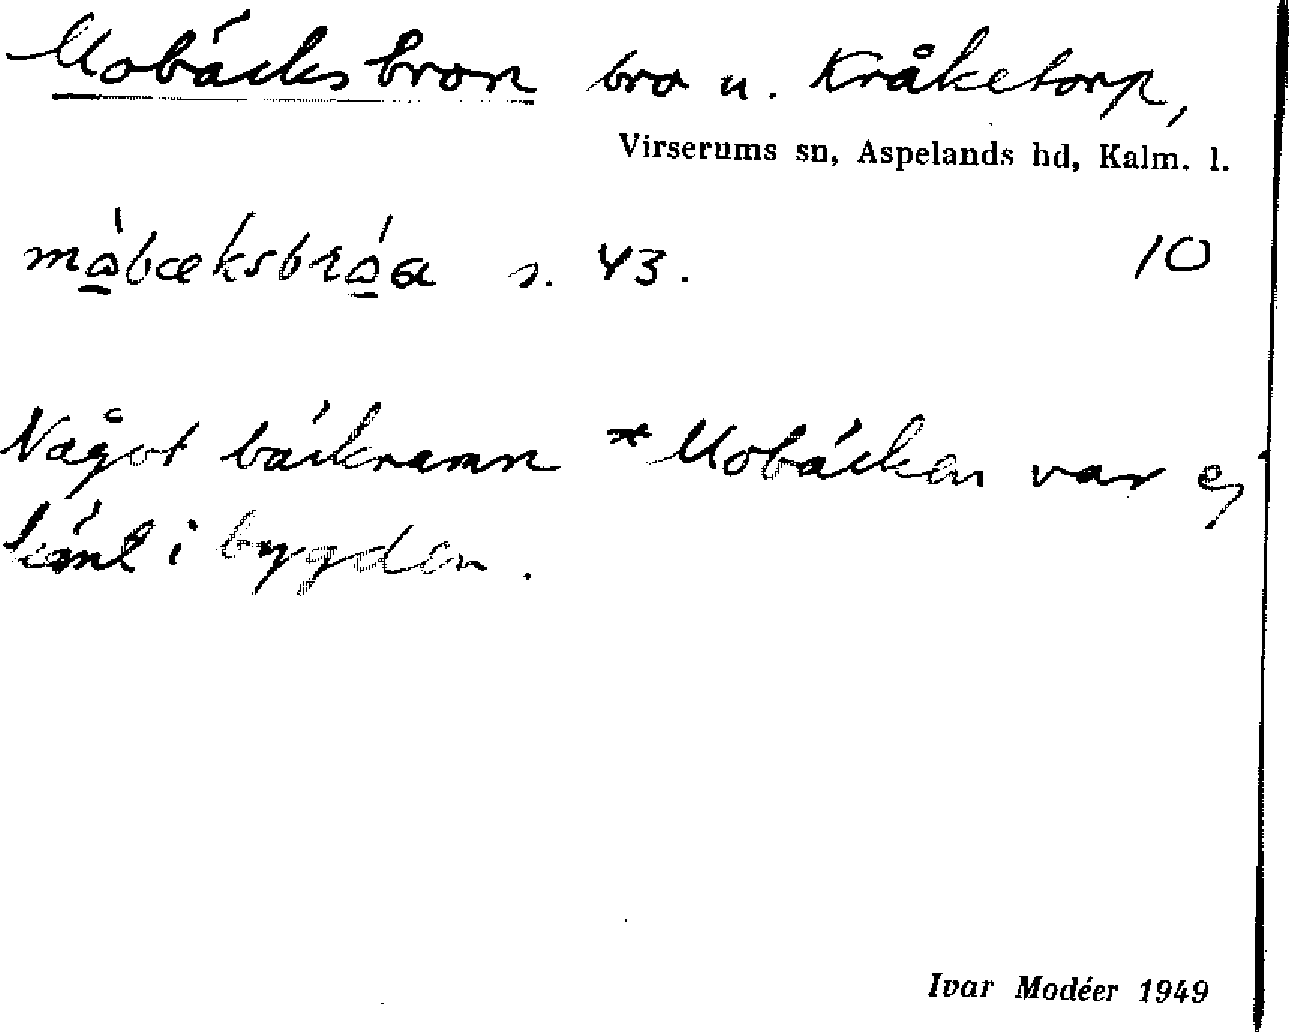 Mobäcksbron bro u. Kråketorp,
Virserums sn, Aspelands hd, Kalm. l.
mò̲bæksbró̲a s. 43. 10
Något bäcknamn *Mobäcken var ej
känt i bygden.
Ivar Modéer 1949